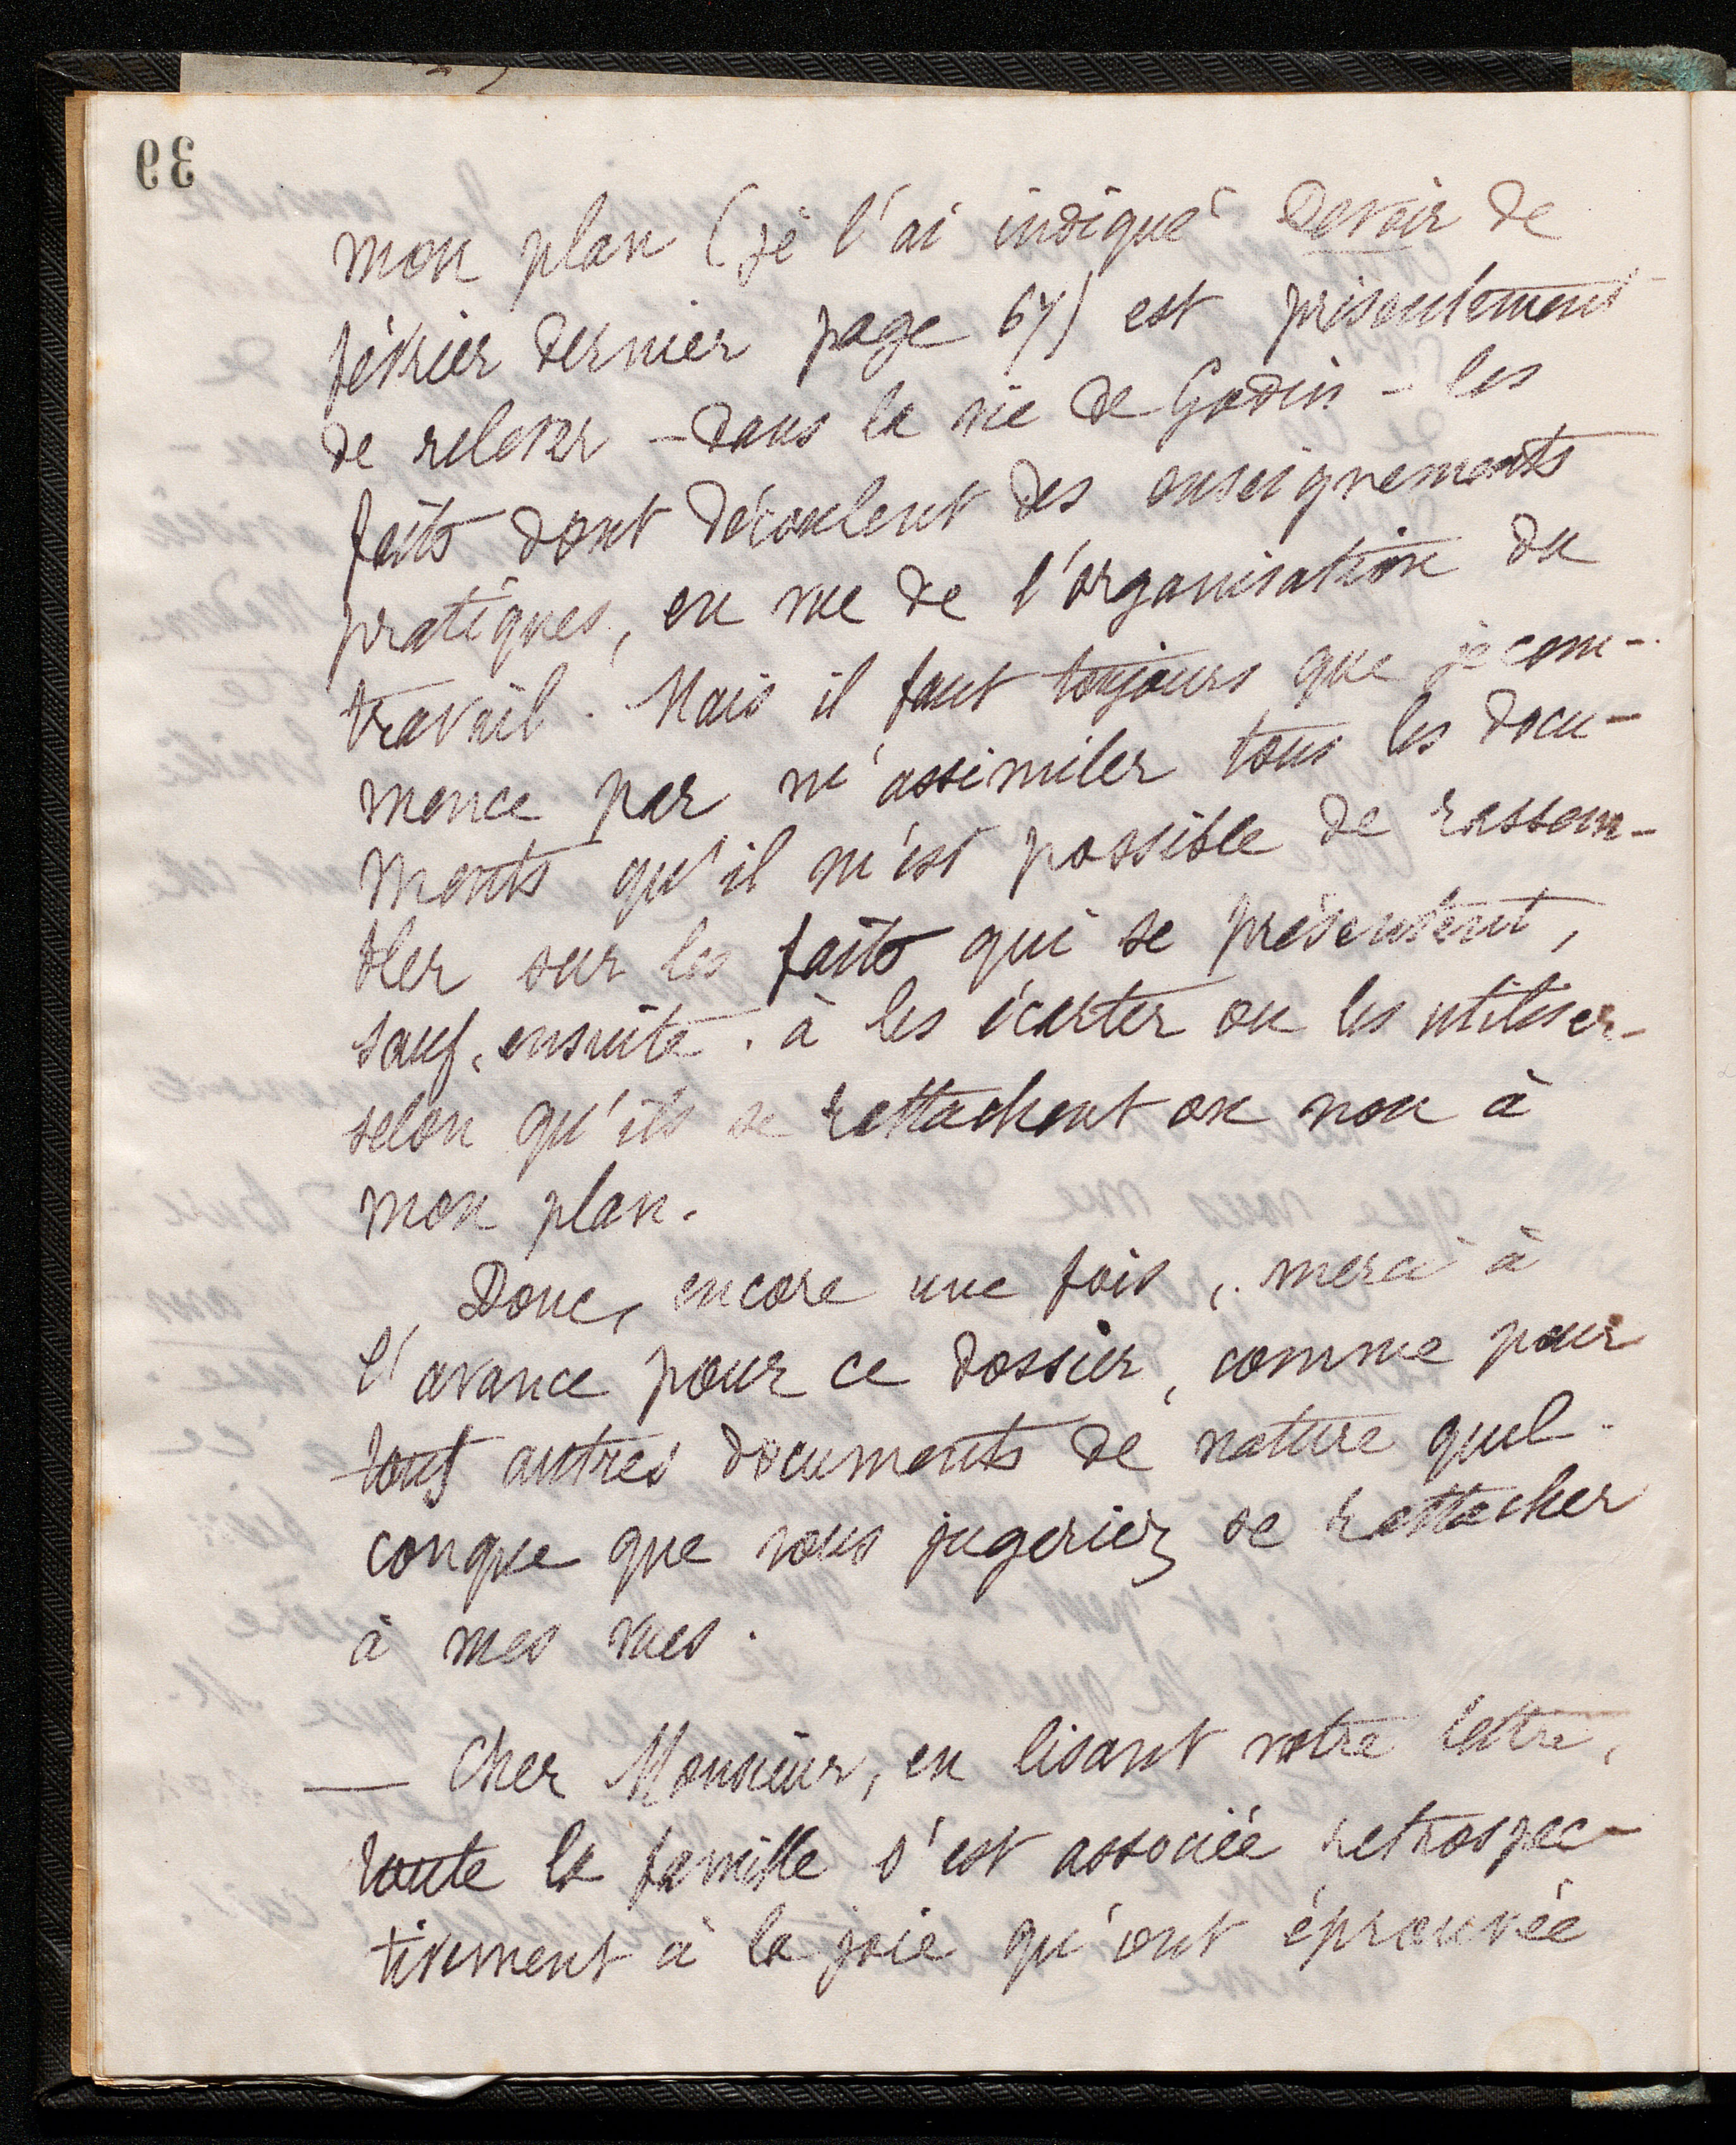 39
mon plan (je l'ai indiqué Devoir de
février dernier page 67) est présentement
de relever - dans la vie de Godin - les
faits dont découlent des enseignements
pratiques, en vue de l'organisation du
travail. Mais il faut toujours que je com-
mence par m'assimiler tous les docu-
ments qu'il m'est possible de rassem-
bler sur les faits qui se présentent,
sauf, ensuite, à les écarter ou les utiliser
selon qu'ils se rattachent ou non à
mon plan.
Donc, encore une fois, merci à
l'avance pour ce dossier, comme pour
tous autres documents de nature quel-
conque que vous jugeriez se rattacher
à mes vues.
— Cher Monsieur, en lisant votre lettre,
toute la famille s'est associée retrospec-
tivement à la joie qu'ont éprouvée